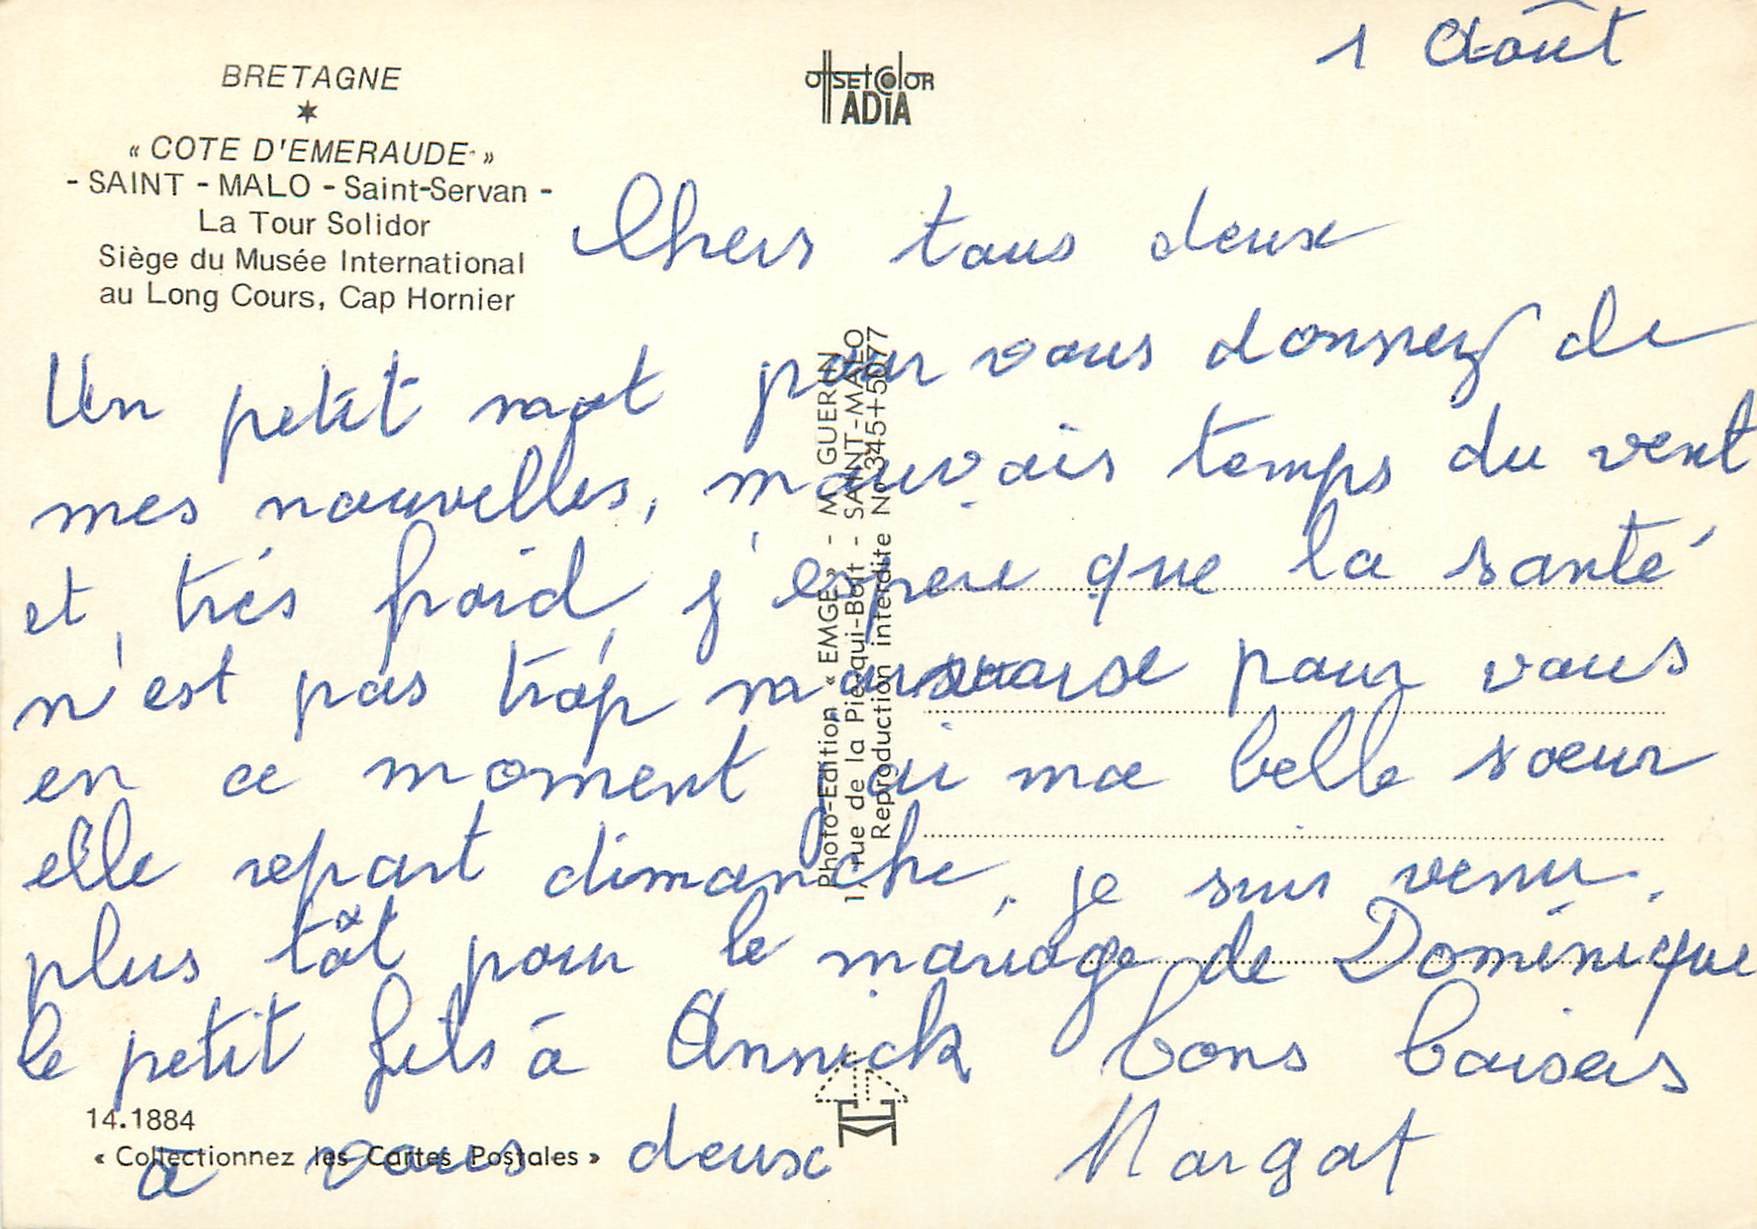 1 Août
BRETAGNE
« COTE D'EMERAUDE »
- SAINT - MALO - Saint-Servan -
La Tour Solidor
Siège du Musée International
au Long Cours, Cap Hornier
offsetcolor
ADIA
Chers tous deux
Un petit mot pour vous donnez de
mes nouvelles, mauvais temps du vent
et très froid, j'espere que la santé
n'est pas trop mauvaise pour vous
en ce moment j'ai ma belle sœur
elle repart dimanche, je suis venu
plus tôt pour le mariage de Dominique
le petit fils à Annick bons baisers
à vous deux Margot
14.1884
« Collectionnez les Cartes Postales »
Photo-Edition « EMGE » - M. GUERIN
rue de la Pie-qui-Boit - SAINT-MALO
Reproduction interdite No 345+5077